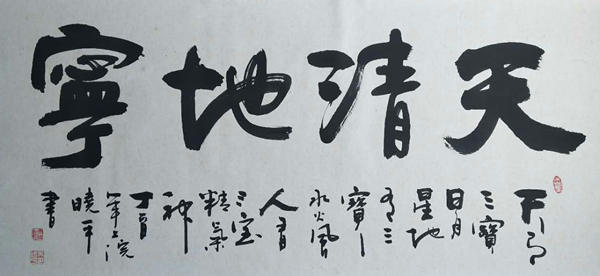 天清地寧
天有
三寶
日月
星地
有三
寶
水火風
人有
三宝
精氣
神
丁酉
年上浣
曉平
書